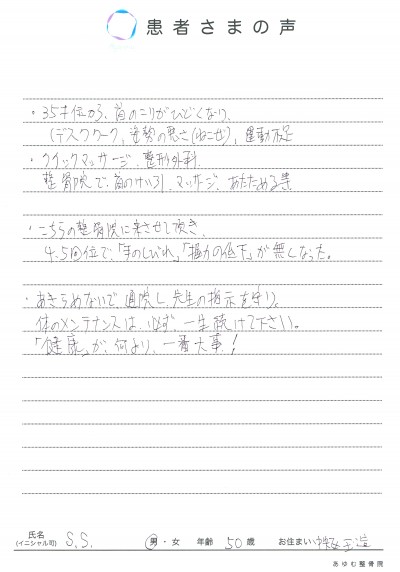 患者さまの声
・35才位から、首のこりがひどくなり、
(デスクワーク、姿勢の悪さ(ねこぜ)、運動不足
・クイックマッサージ、整形外科、
整骨院で、首のけん引、マッサージ、あたためる等
・こちらの整骨院に来させて頂き、
4、5回位で「手のしびれ」「握力の低下」が無くなった。
・あきらめないで通院し、先生の指示を守り、
体のメンテナンスは、必ず、一生続けて下さい。
「健康」が、何より、一番大事!
氏名(イニシャル可) S.S. 男・女 年齢 50 歳 お住まい
あゆむ整骨院